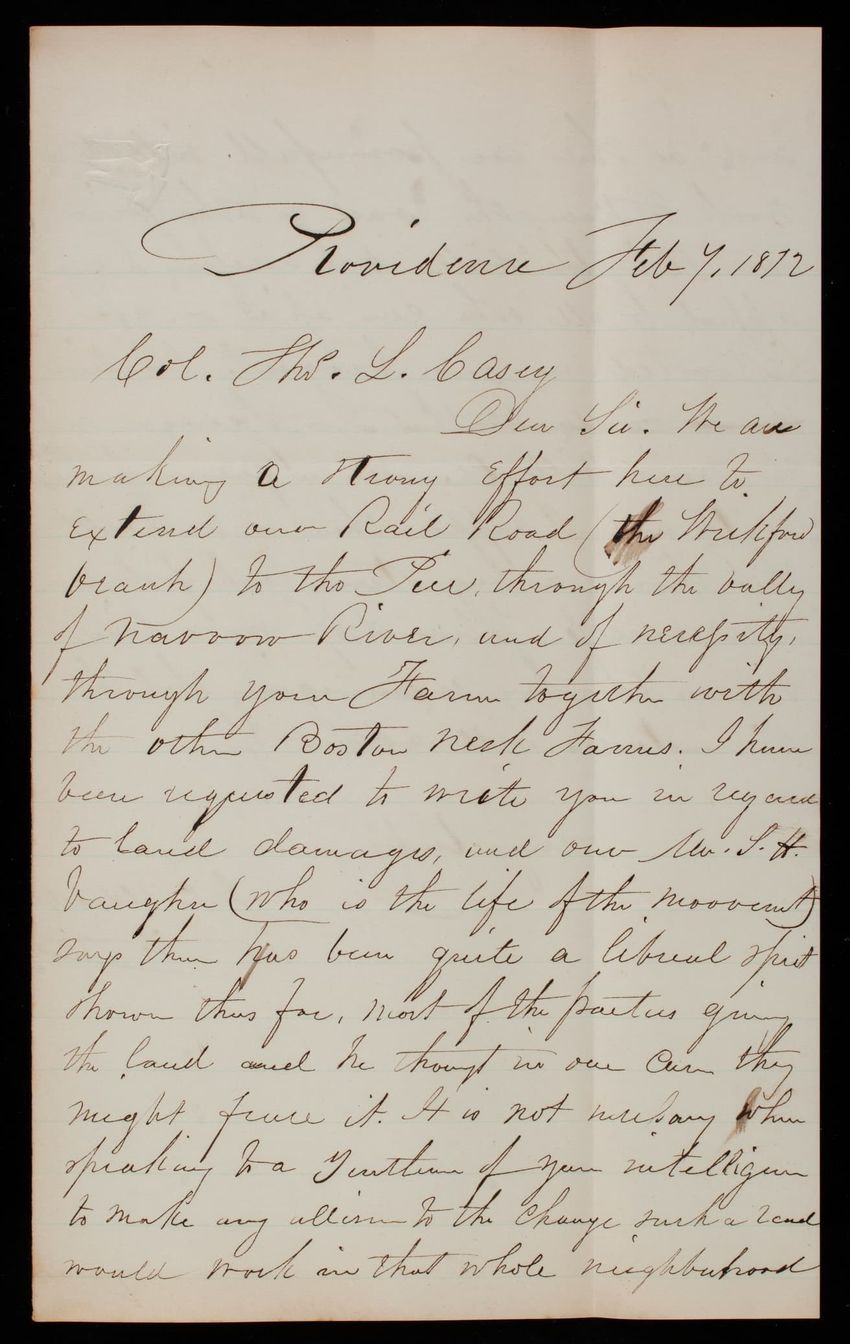 Providence Feb 7, 1872
Col. Thos. L. Casey
Dear Sir. We are
making a strong effort here to
extend our Rail Road (the Wickford
branch) to the Pier, through the valley
of Narrow River, and of necessity,
through your Farm together with
the other Boston neck Farms. I have
been requested to write you in regard
to land damages, and our Mr. S. H.
Vaughn (who is the life of the moovement)
says there has been quite a liberal spirit
shown thus far, most of the parties giving
the land and he thought in our case they
might have it. It is not necessary when
speaking to a Gentleman of your intelligence
to make any allision to the change such a road
would work in that whole neighborhood